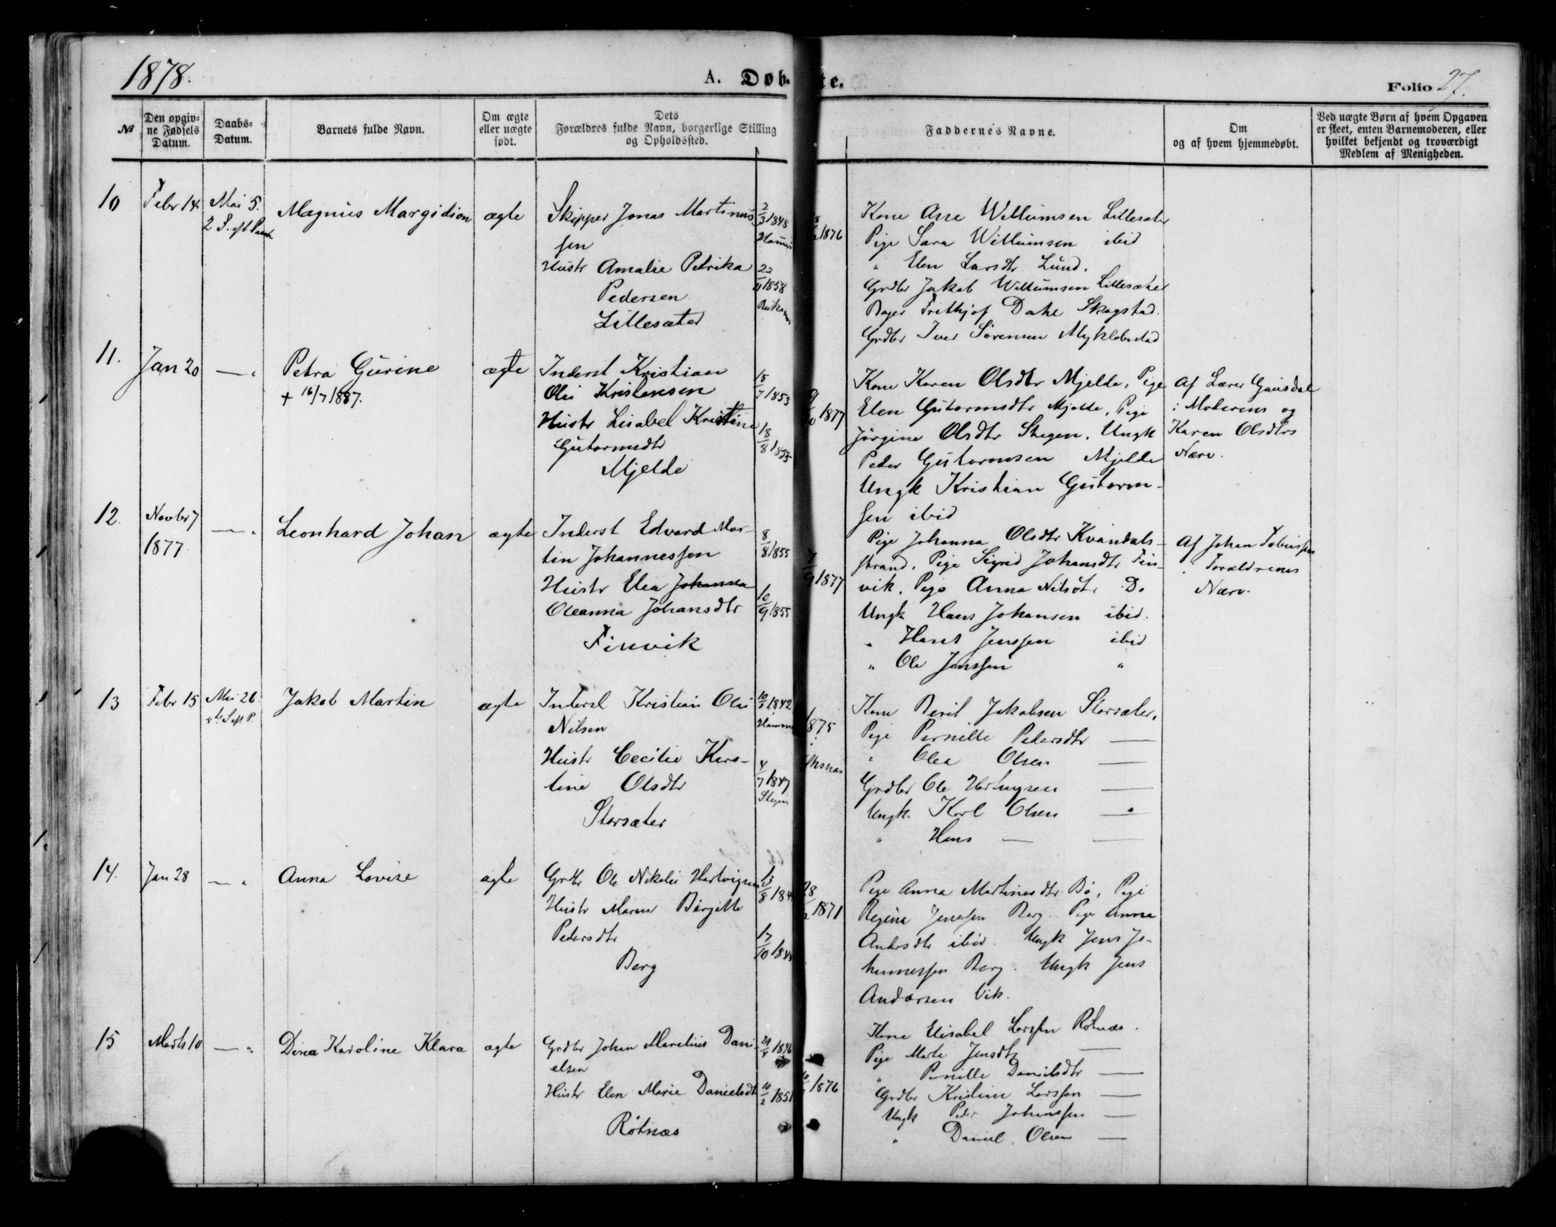 1878.
A. Døb
te.
Folio 27.
No
Den opgiv-
ne Fødsels
Datum.
Daabs-
Datum.
Barnets fulde Navn.
Om ægte
eller uægte
født.
Dets
Forældres fulde Navn, borgerlige Stilling
og Opholdssted.
Faddernes Navne.
Om
og af hvem hjemmedøbt.
Ved uægte Børn af hvem Opgaven
er skeet, enten Barnemoderen, eller
hvilket bekjendt og troværdigt
Medlem af Menigheden.
10
Febr 14
Mai 5.
2 S. eft Paask
Magnus Margidion
ægte
Skipper Jonas Martinus
sen
Hustr Amalie Petrika
Pedersen
Lillesæter
2/3 1848
22/9 1858
1876
Kone Ane Willumsen Lillesæter
Pige Sara Willumsen ibid
" Elen Larsdtr Lund.
Grdbr Jakob Willumsen Lillesæter
Frithjof Dahl Skogstad.
Grdbr Iver Sørensen Myklebostad
11.
Jan 20
— "
Petra Gurine
+ 16/7 1887.
ægte
Inderst Kristian
Olai Kristensen
Hustr Lisabel Kristine
Gutormsdtr
Mjelde
18/7 1853
18/8 1855
1877
Kone Karen Olsdtr Mjelde, Pige
Elen Gutormsdtr Mjelde, Pige
Jørgine Olsdtr Skegen, Ungk
Peder Gutormsen Mjelde
Ungk Kristian Gutorm-
sen ibid
Af Lærer Gausdal
i Moderens og
Karen Olsdtrs
Nærv.
12.
Novbr 7
1877
— "
Leonhard Johan
ægte
Inderst Edvard Mar-
tin Johannessen
Hustr Elea Johanna
Oleanna Johansdtr
Finvik
8/8 1855
10/9 1855
7/9 1877
Pige Johanna Olsdtr Kvandals-
strand, Pige Sigrid Johansdtr Fin-
vik, Pige Anna Nilsdtr Do
Ungk Hans Johansen ibid.
" Hans Jenssen ibid
" Ole Jenssen "
Af Johan Tobiassen
i Forældrenes
Nærv.
13
Febr 15
Mai 26
Jakob Martin
ægte
Inderst Kristian Olai
Nilsen
Hustr Cecilie Kirs-
tine Olsdtr
Storsæter
1842
4/7 1847
1875
Kone Berit Jakobsen Storsæter,
Pige Pernille Pedersdtr —
" Olea Olsen
Grdbr Ole Hartvigsen —
Ungk. Karl Olsen —
" Hans — —
14.
Jan 28
— "
Anna Lovise
ægte
Grdbr Ole Nikolai Hartvigsen
Hustr Maren Birgitte
Pedersdtr
Berg
17/10
1871
Pige Anna Martinesdtr Bø, Pige
Regine Jenssen Berg. Pige Anna
Andersdtr ibid. Ungk Jens Jo-
hannessen Berg. Ungk Jens
Andersen Vik.
15
Marts 10
— "
Dina Karoline Klara
ægte
Grdbr Johan Maretius Dani-
elsen
Hustr Elen Marie Danielsdtr
Rotnæs
10/2 1851
1876
Kone Elisabet Larssen Rotnæs.
Pige Marta Jensdtr —
" Pernille Danielsdtr —
Grdbr Kristian Larssen —
Ungk Peder Johanssen —
" Daniel Olsen —